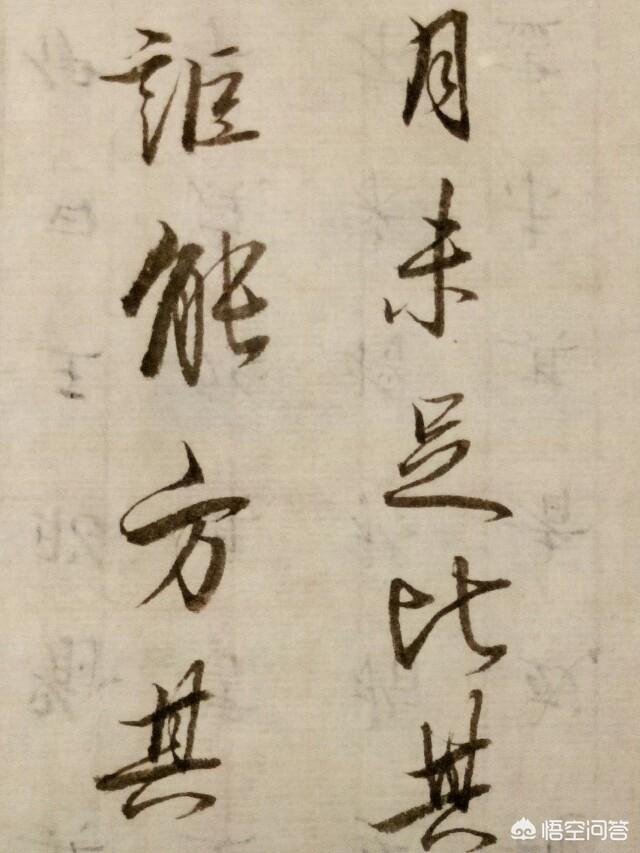 月未足比其
詎能方其
悟空问答